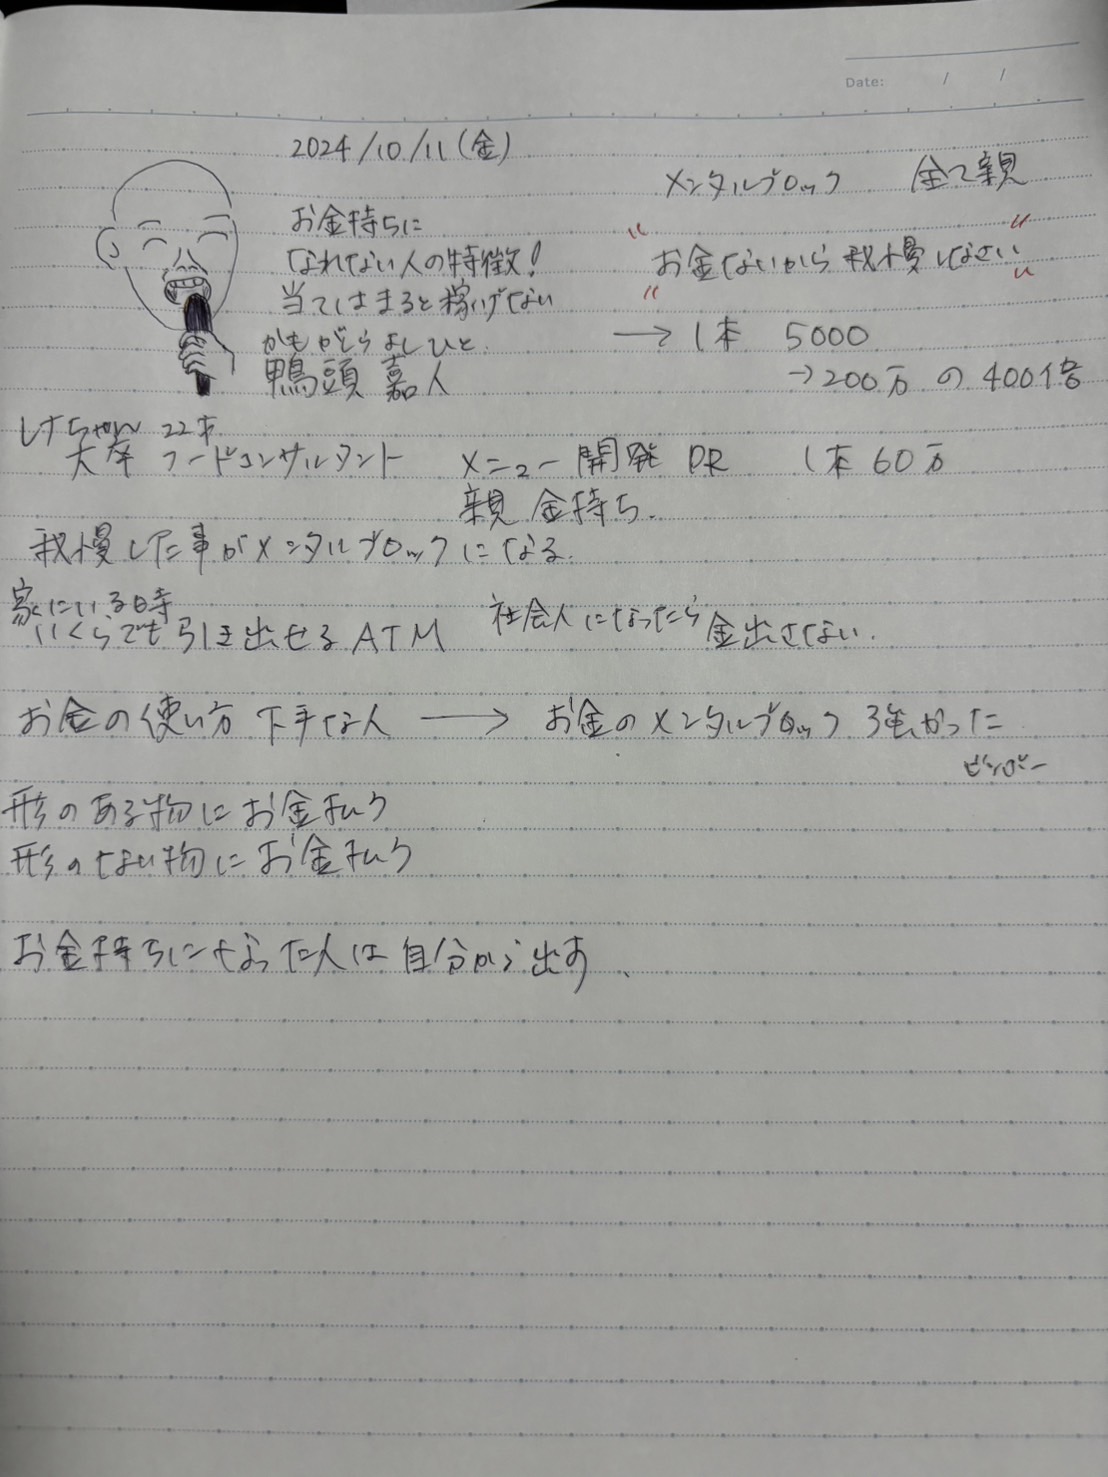 Date: / /
2024/10/11(金)
お金持ちに
なれない人の特徴!
当てはまると稼げない
かもがしら よしひと
鴨頭 嘉人
メンタルブロック 全て親
"お金ないから我慢しなさい"
→ 1本 5000
→200万の400倍
しげちゃん 22才
大卒 フードコンサルタント メニュー開発 PR 1本60万
親 金持ち.
我慢した事がメンタルブロックになる.
家にいる時
いくらでも引き出せるATM
社会人になったら金出さない.
お金の使い方 下手な人 → お金のメンタルブロック 強かった
ビンボー
形のある物にお金払う
形のない物にお金払う
お金持ちになった人は自分から出す、